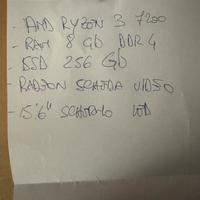 - AMD RYZON 3 7200
- RAM 8 Gb DDR4
- SSD 256 Gb
- RADEON SCHEDA VIDEO
- 15'6" SCHERMO LED